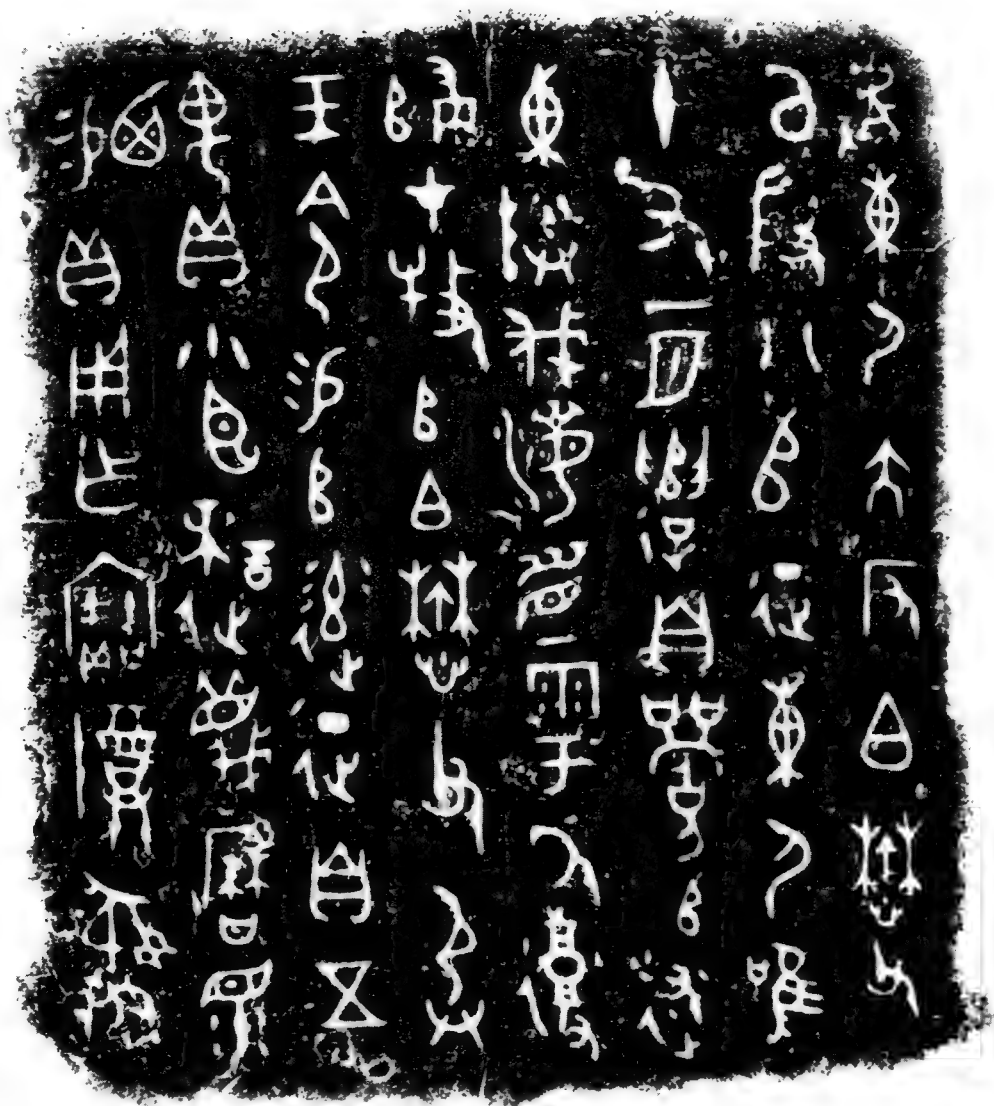 䖒東尸大反白懋父
㠯殷八𠂤征東尸唯
十又一月遣自𠂤述
東陕伐海眉雩氒復
歸才牧𠂤白懋父承
王令易𠂤率征自五
齵貝小臣謎蔑曆眔
易貝用乍寶尊彝